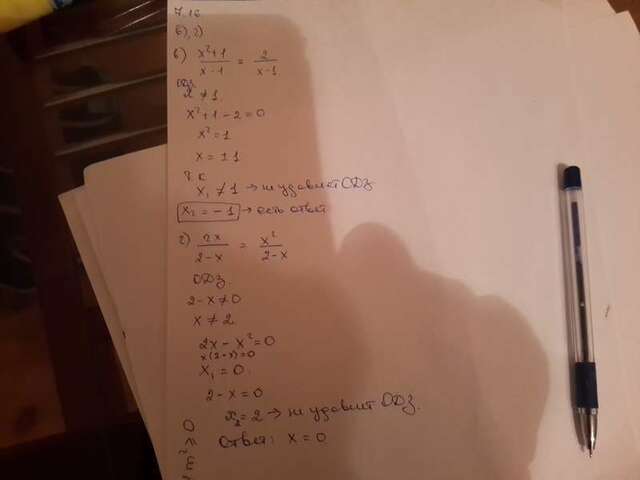 7.16
в), г)
в) x²+1 / x-1 = 2 / x-1
ОДЗ
x ≠ 1
x²+1-2=0
x²=1
x=±1
т.к
x₁ ≠ 1 → не удовлит ОДЗ
x₂ = -1 → есть ответ
г) 2x / 2-x = x² / 2-x
ОДЗ.
2-x≠0
x≠2
2x-x²=0
x(2-x)=0
x₁=0.
2-x=0
x₂=2 → не удовлит ОДЗ.
Ответ: x=0